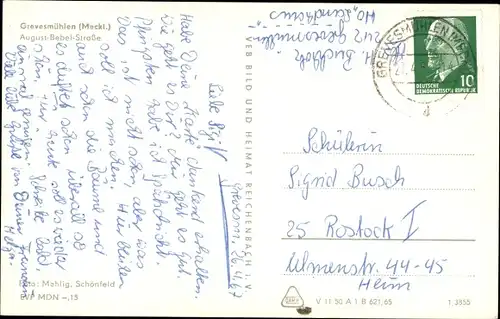 Grevesmühlen (Meckl.)
August-Bebel-Straße
Grevesm. 26.4.67
Liebe Sigrid!
Habe Deine Karte dankend erhalten.
Wie geht es Dir? Mir geht es gut.
Pfingsten habe ich Spätschicht.
Das ist nicht schön, aber was
soll ich machen. Hier blühen
auch schon die Bäume und
es duftet schon überall so
schön. Heute soll es wieder
regnen. Schreibe bald.
Viele liebe Grüße von Deiner Freundin
Helga.
Foto: Mahlig, Schönfeld
EVP MDN -,15
VEB BILD UND HEIMAT REICHENBACH I. V.
V 11 50 A 1 B 621/65
1 3855
H. Buchholz
242 Grevesmühlen
HO „Landhaus
GREVESMÜHLEN
DEUTSCHE
DEMOKRATISCHE REPUBLIK
10
Schülerin
Sigrid Busch
25 Rostock I
Ulmenstr. 44-45
Heim